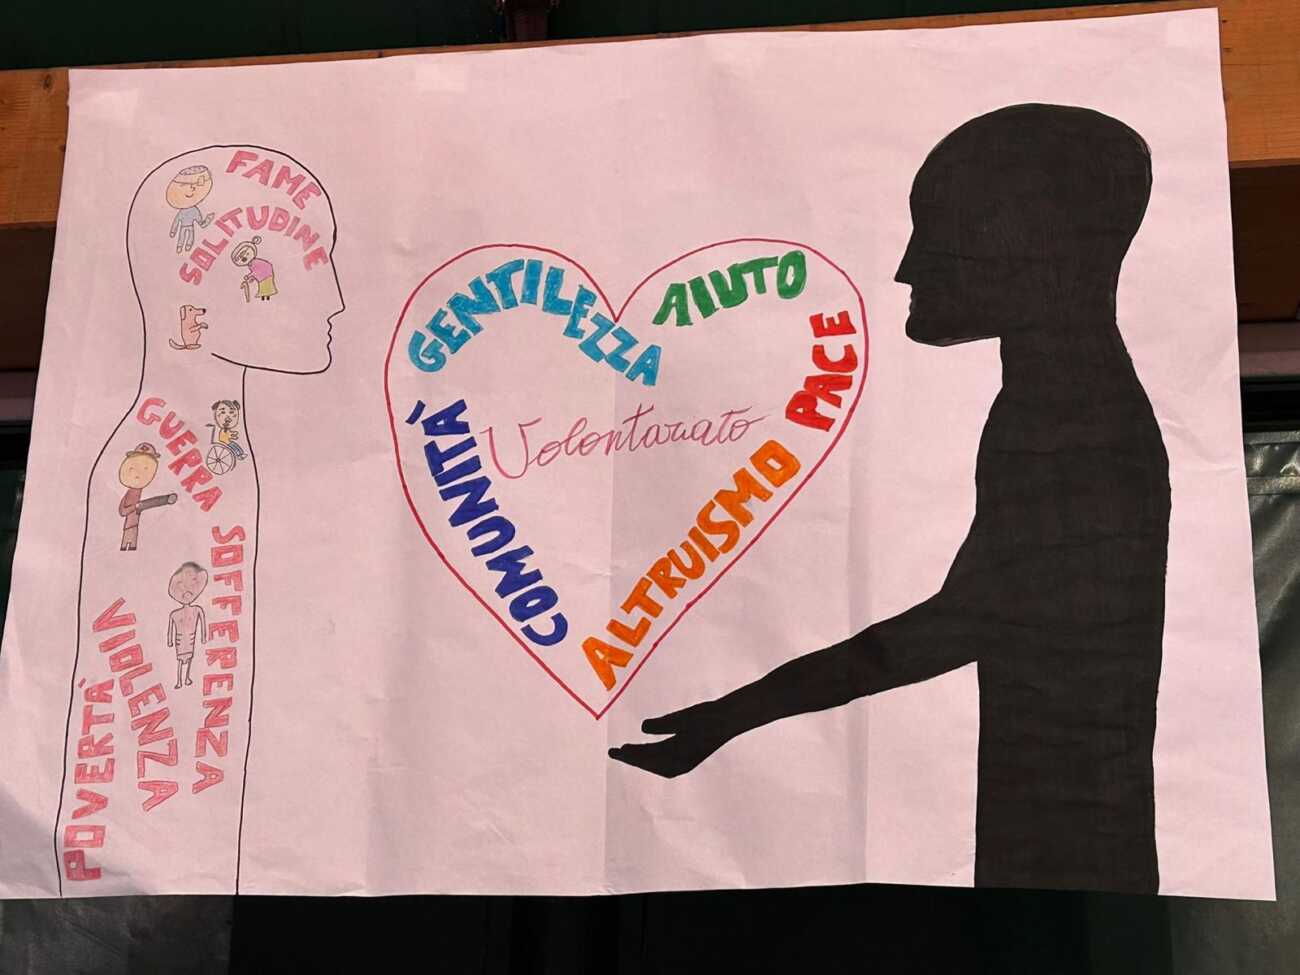 FAME
SOLITUDINE
GUERRA
SOFFERENZA
VIOLENZA
POVERTÀ
GENTILEZZA
AIUTO
PACE
Volontariato
COMUNITÁ
ALTRUISMO